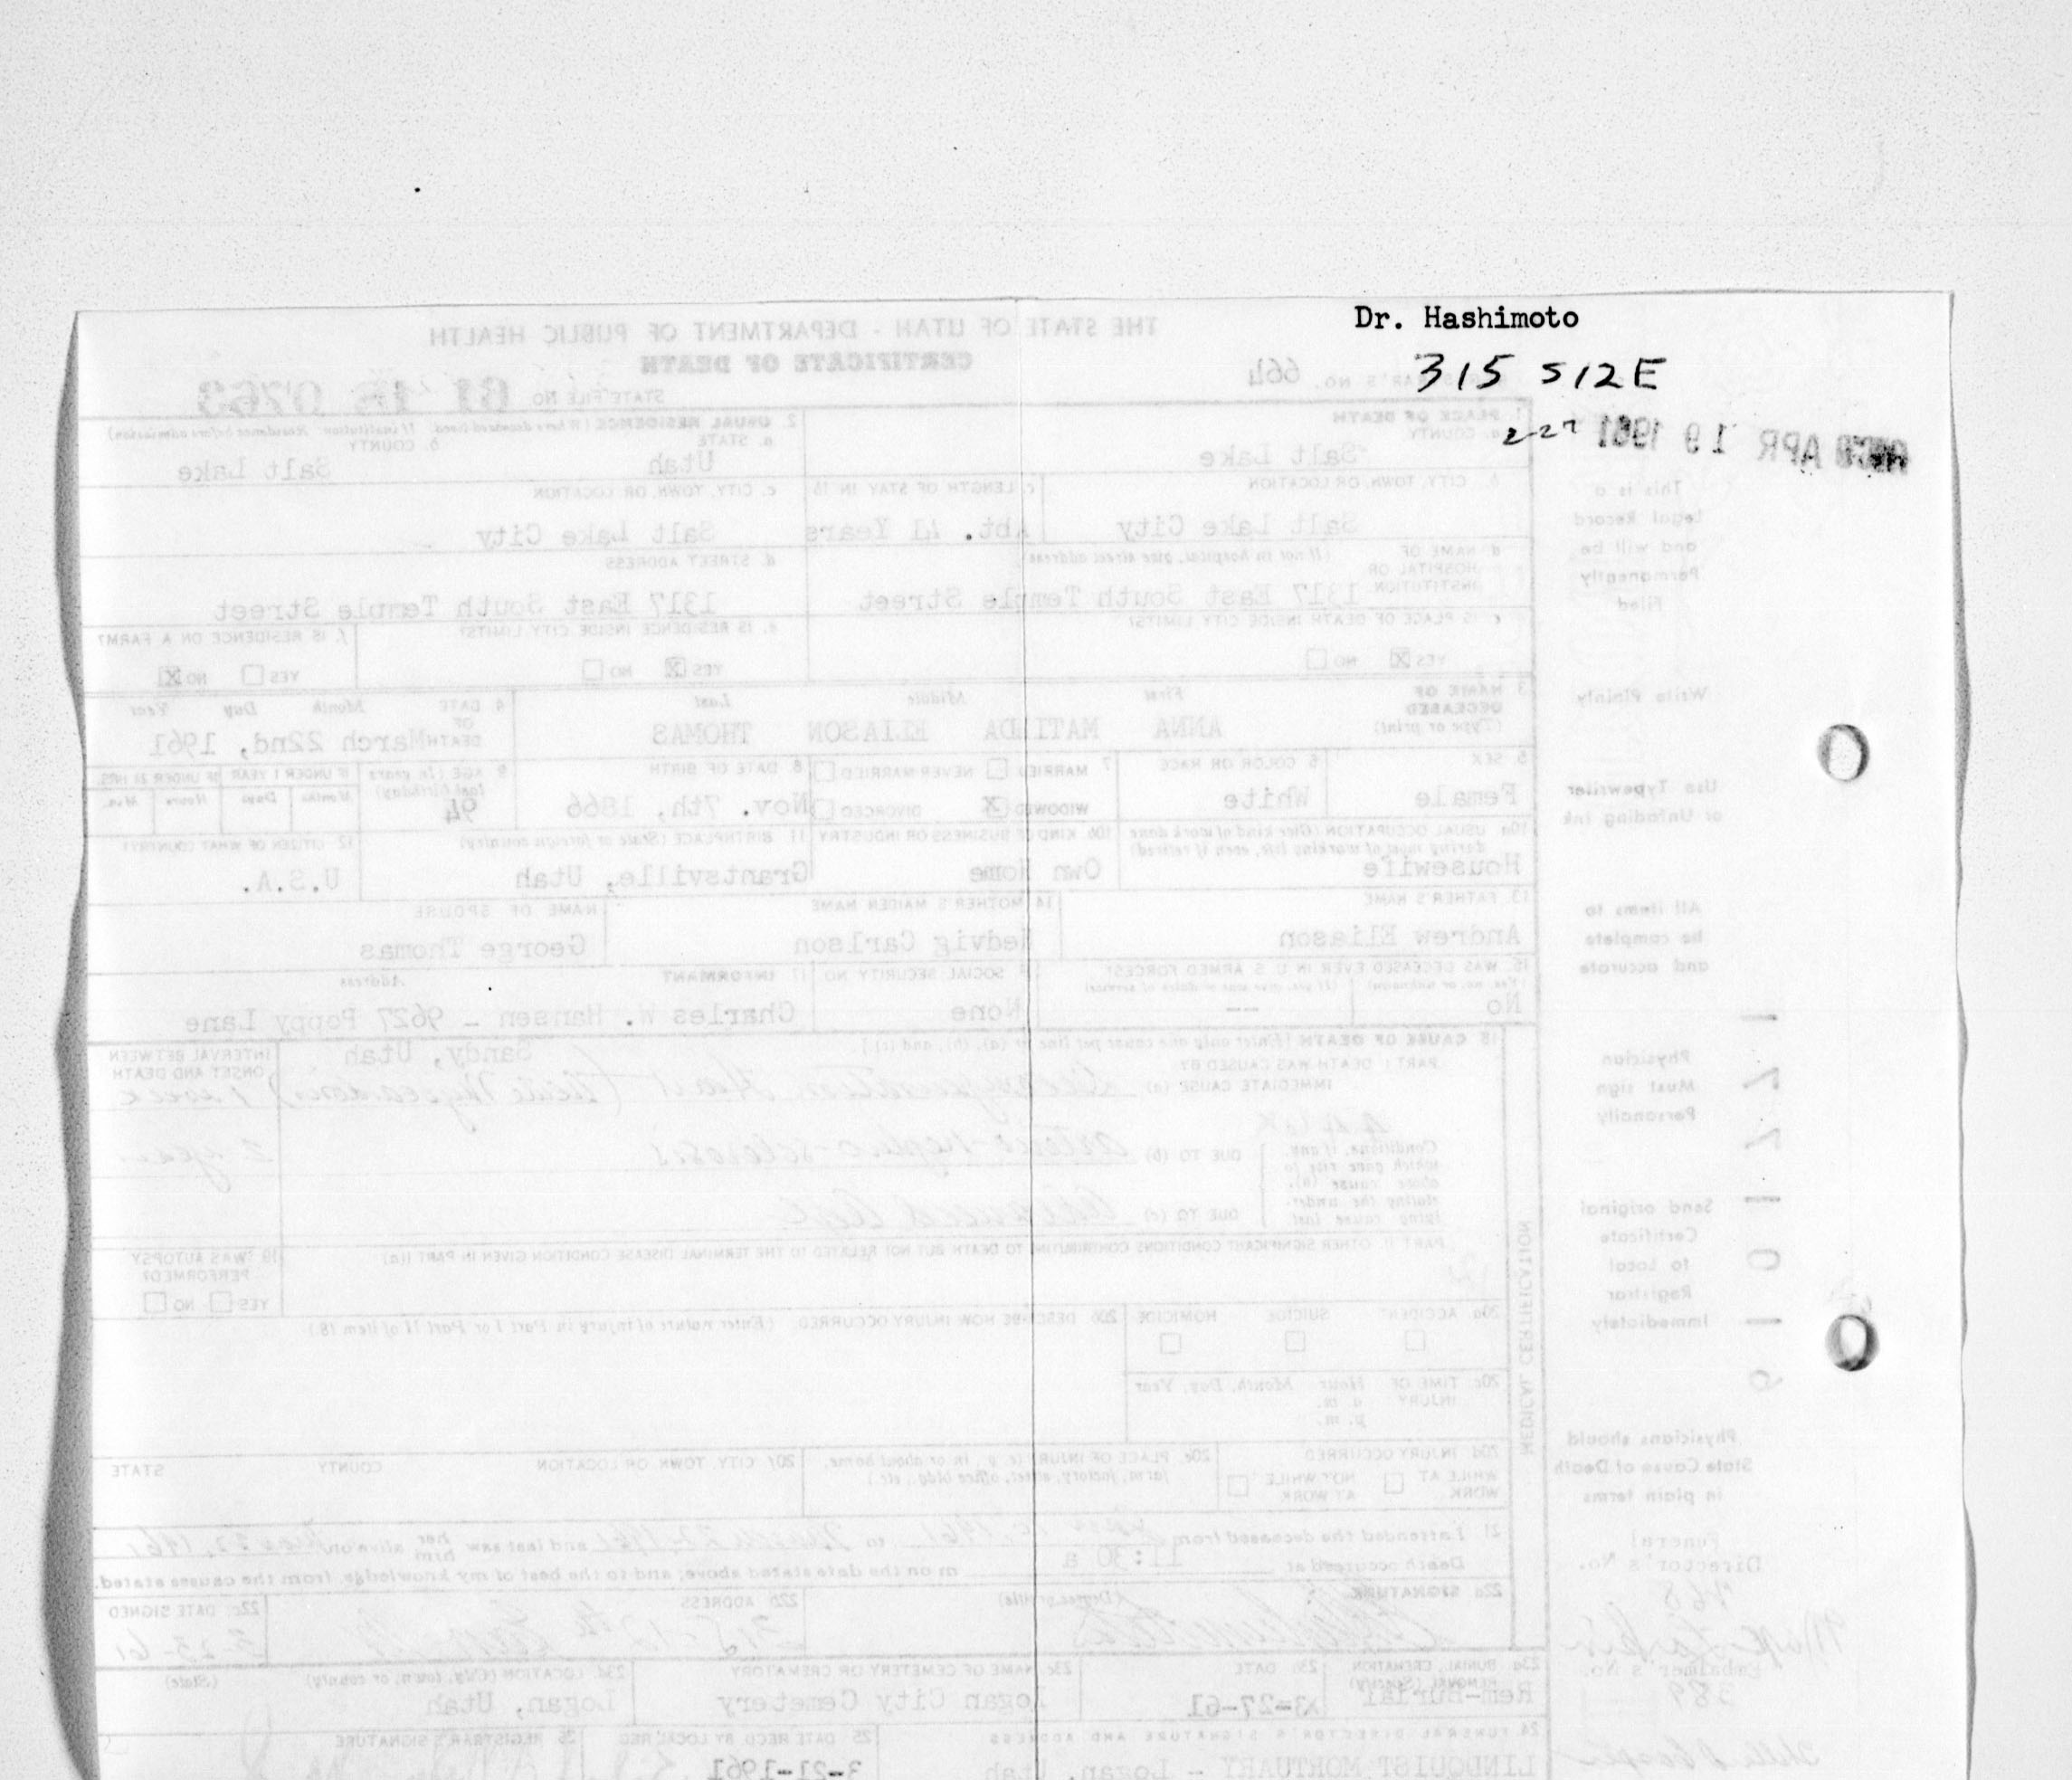 Dr. Hashimoto
315 S 12 E
THE STATE OF UTAH - DEPARTMENT OF PUBLIC HEALTH
CERTIFICATE OF DEATH
664
STATE FILE NO. 61 18 0763
APR 19 1961
1. PLACE OF DEATH
a. COUNTY
Salt Lake
2. USUAL RESIDENCE (Where deceased lived. If institution: Residence before admission)
a. STATE
Utah
b. COUNTY
Salt Lake
b. CITY, TOWN, OR LOCATION
Salt Lake City
c. LENGTH OF STAY IN 1b
Abt. 41 Years
c. CITY, TOWN, OR LOCATION
Salt Lake City
d. NAME OF HOSPITAL OR INSTITUTION (If not in hospital, give street address)
1317 East South Temple Street
d. STREET ADDRESS
1317 East South Temple Street
e. IS PLACE OF DEATH INSIDE CITY LIMITS?
YES X NO
e. IS RESIDENCE INSIDE CITY LIMITS?
YES X NO
f. IS RESIDENCE ON A FARM?
YES NO X
3. NAME OF DECEASED (Type or print)
First Middle Last
ANNA MATILDA ELIASON THOMAS
4. DATE OF DEATH
Month Day Year
March 22nd, 1961
5. SEX
Female
6. COLOR OR RACE
White
7. MARRIED NEVER MARRIED
WIDOWED X DIVORCED
8. DATE OF BIRTH
Nov. 7th, 1866
9. AGE (In years last birthday)
94
IF UNDER 1 YEAR IF UNDER 24 HRS.
Months Days Hours Min.
10a. USUAL OCCUPATION (Give kind of work done during most of working life, even if retired)
Housewife
10b. KIND OF BUSINESS OR INDUSTRY
Own Home
11. BIRTHPLACE (State or foreign country)
Grantsville, Utah
12. CITIZEN OF WHAT COUNTRY?
U.S.A.
13. FATHER'S NAME
Andrew Eliason
14. MOTHER'S MAIDEN NAME
Hedvig Carlson
NAME OF SPOUSE
George Thomas
15. WAS DECEASED EVER IN U.S. ARMED FORCES?
(Yes, no, or unknown) (If yes, give war or dates of service)
No --
16. SOCIAL SECURITY NO.
None
17. INFORMANT Address
Charles W. Hansen - 9627 Poppy Lane
Sandy, Utah
18. CAUSE OF DEATH [Enter only one cause per line for (a), (b), and (c).]
PART I. DEATH WAS CAUSED BY
IMMEDIATE CAUSE (a)
INTERVAL BETWEEN ONSET AND DEATH
1 week
Conditions, if any, which gave rise to above cause (a), stating the underlying cause last
DUE TO (b) arterio-nephro-sclerosis
DUE TO (c) Advanced Age
PART II. OTHER SIGNIFICANT CONDITIONS CONTRIBUTING TO DEATH BUT NOT RELATED TO THE TERMINAL DISEASE CONDITION GIVEN IN PART I(a)
19. WAS AUTOPSY PERFORMED?
YES NO
20a. ACCIDENT SUICIDE HOMICIDE
20b. DESCRIBE HOW INJURY OCCURRED. (Enter nature of injury in Part I or Part II of item 18.)
20c. TIME OF INJURY Hour Month, Day, Year
a. m.
p. m.
20d. INJURY OCCURRED
WHILE AT WORK NOT WHILE AT WORK
20e. PLACE OF INJURY (e. g., in or about home, farm, factory, street, office bldg., etc.)
20f. CITY, TOWN, OR LOCATION COUNTY STATE
21. I attended the deceased from 1961 to March 22, 1961 and last saw her him alive on Mar 22, 1961
Death occurred at 11:30 a m on the date stated above; and to the best of my knowledge, from the causes stated.
22a. SIGNATURE (Degree or title)
22b. ADDRESS
315-12th East
22c. DATE SIGNED
3-23-61
23a. BURIAL, CREMATION, REMOVAL (Specify)
Rem-Burial
23b. DATE
3-27-61
23c. NAME OF CEMETERY OR CREMATORY
Logan City Cemetery
23d. LOCATION (City, town, or county) (State)
Logan, Utah
24. FUNERAL DIRECTOR'S SIGNATURE AND ADDRESS
LINDQUIST MORTUARY - Logan, Utah
25. DATE RECD. BY LOCAL REG.
3-21-1961
26. REGISTRAR'S SIGNATURE
MEDICAL CERTIFICATION
This is a
Legal Record
and will be
Permanently
Filed
Write Plainly
Use Typewriter
or Unfading Ink
All items to
be complete
and accurate
Physician
Must sign
Personally
Send original
Certificate
to Local
Registrar
Immediately
Physicians should
State Cause of Death
in plain terms
Funeral
Director's No.
Embalmer's No.
389